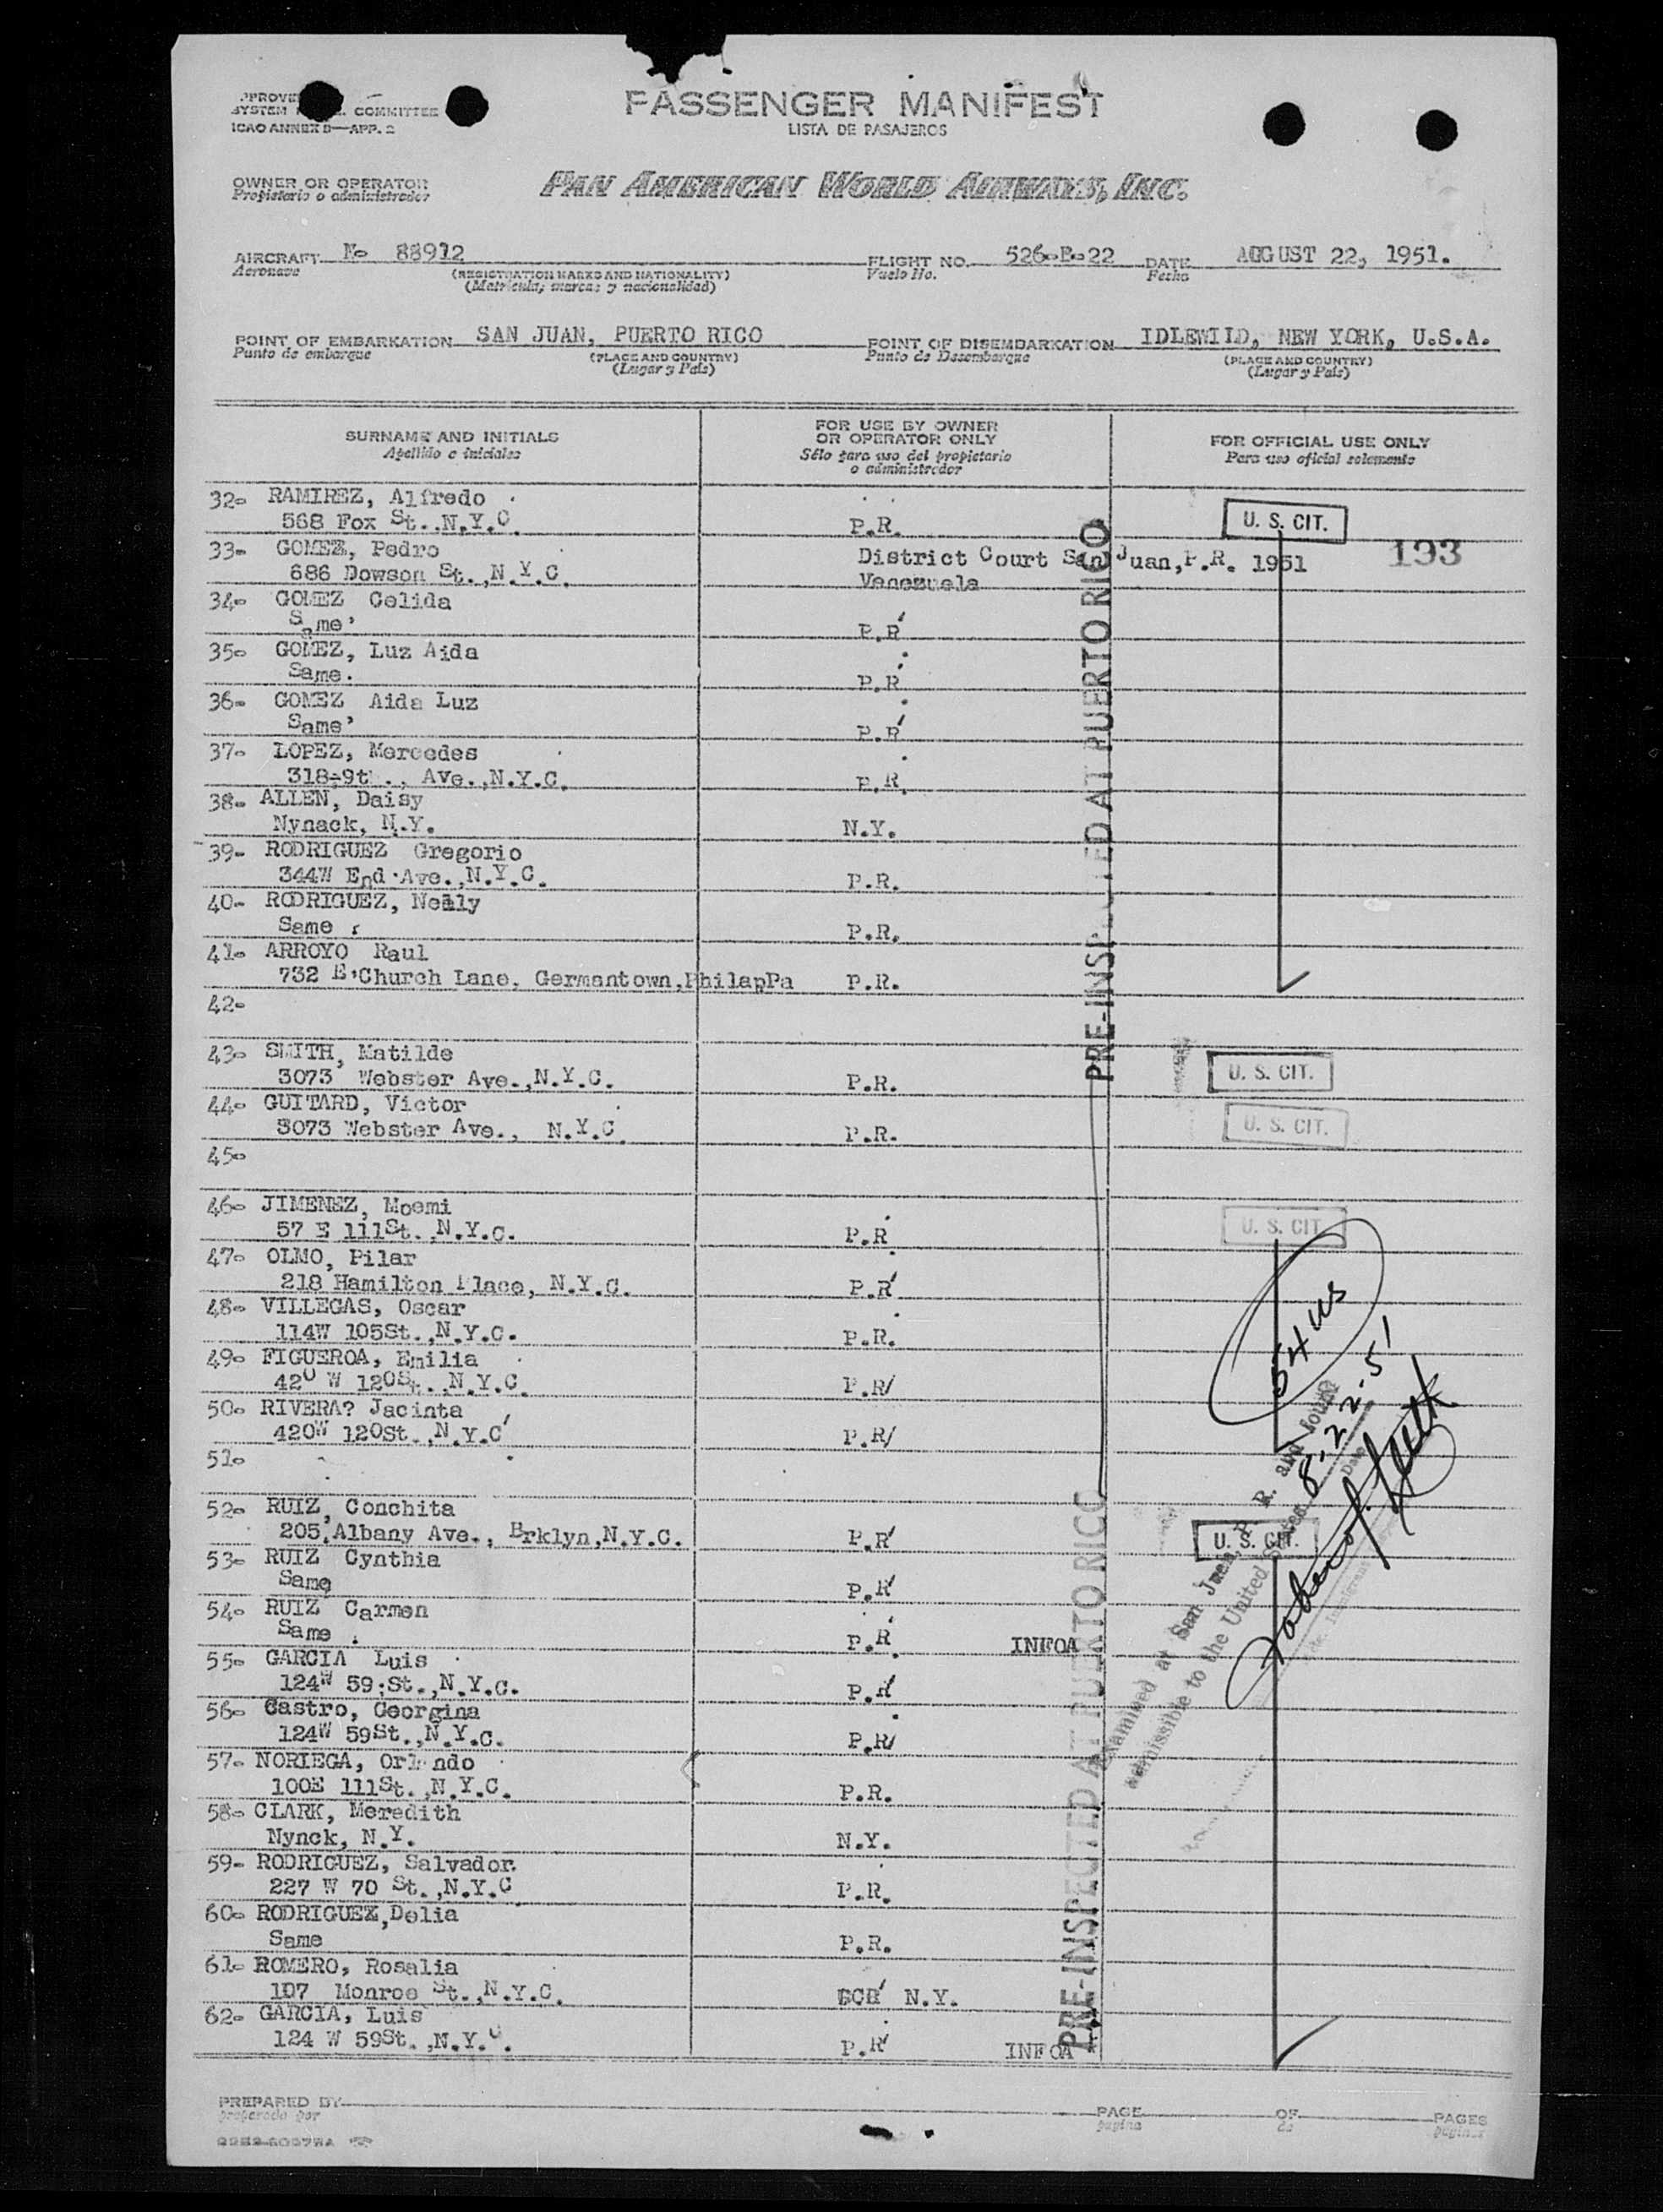 SYSTEM COMMITTEE
ICAO ANNEX 9—APP. 2
PASSENGER MANIFEST
LISTA DE PASAJEROS
OWNER OR OPERATOR
Propietario o administrador
PAN AMERICAN WORLD AIRWAYS, INC.
AIRCRAFT N- 88912
Aeronave
(REGISTRATION MARKS AND NATIONALITY)
(Matricula, marcas y nacionalidad)
FLIGHT NO. 526-B-22
Vuelo No.
DATE AUGUST 22, 1951.
Fecha
POINT OF EMBARKATION SAN JUAN, PUERTO RICO
Punto de embarque
(PLACE AND COUNTRY)
(Lugar y País)
POINT OF DISEMBARKATION IDLEWILD, NEW YORK, U.S.A.
Punto de Desembarque
(PLACE AND COUNTRY)
(Lugar y País)
SURNAME AND INITIALS
Apellido e iniciales
FOR USE BY OWNER
OR OPERATOR ONLY
Sólo para uso del propietario
o administrador
FOR OFFICIAL USE ONLY
Para uso oficial solamente
32- RAMIREZ, Alfredo
568 Fox St., N.Y.C. P.R. U. S. CIT.
33- GOMEZ, Pedro District Court San Juan, P.R. 1951 193
686 Dowson St., N.Y.C. Venezuela
34- GOMEZ Celida
Same P.R
35- GOMEZ, Luz Aida
Same. P.R
36- GOMEZ Aida Luz
Same P.R
37- LOPEZ, Mercedes
318-9t ., Ave., N.Y.C. P.R.
38- ALLEN, Daisy
Nynack, N.Y. N.Y.
39- RODRIGUEZ Gregorio
344W End Ave., N.Y.C. P.R.
40- RODRIGUEZ, Nelly
Same P.R.
41- ARROYO Raul
732 E Church Lane, Germantown, PhilapPa P.R.
42-
43- SMITH, Matilde
3073 Webster Ave., N.Y.C. P.R. U. S. CIT.
44- GUITARD, Victor
3073 Webster Ave., N.Y.C P.R. U. S. CIT.
45-
46- JIMENEZ, Noemi
57 E 111St., N.Y.C. P.R U. S. CIT.
47- OLMO, Pilar
218 Hamilton Place, N.Y.C. P.R
48- VILLEGAS, Oscar
114W 105St., N.Y.C. P.R.
49- FIGUEROA, Emilia
420 W 120St., N.Y.C P.R/
50- RIVERA? Jacinta
420W 120St., N.Y.C P.R/
51-
52- RUIZ, Conchita
205 Albany Ave., Brklyn, N.Y.C. P.R U. S. CIT.
53- RUIZ Cynthia
Same P.R
54- RUIZ Carmen
Same . P.R INFOA
55- GARCIA Luis
124W 59 St., N.Y.C. P.R
56- Castro, Georgina
124W 59St., N.Y.C. P.R/
57- NORIEGA, Orl ndo
100E 111St., N.Y.C. P.R.
58- CLARK, Meredith
Nynck, N.Y. N.Y.
59- RODRIGUEZ, Salvador
227 W 70 St., N.Y.C P.R.
60- RODRIGUEZ, Delia
Same P.R.
61- ROMERO, Rosalia
107 Monroe St., N.Y.C. N.Y.
62- GARCIA, Luis
124 W 59St., N.Y.C. P.R INFOA
PRE-INSPECTED AT PUERTO RICO
PRE-INSPECTED AT PUERTO RICO
54 US
Examined at San Juan, P. R. and found
admissible to the United States
8-22-51
Date
PREPARED BY
preparado por
PAGE OF PAGES
página de páginas